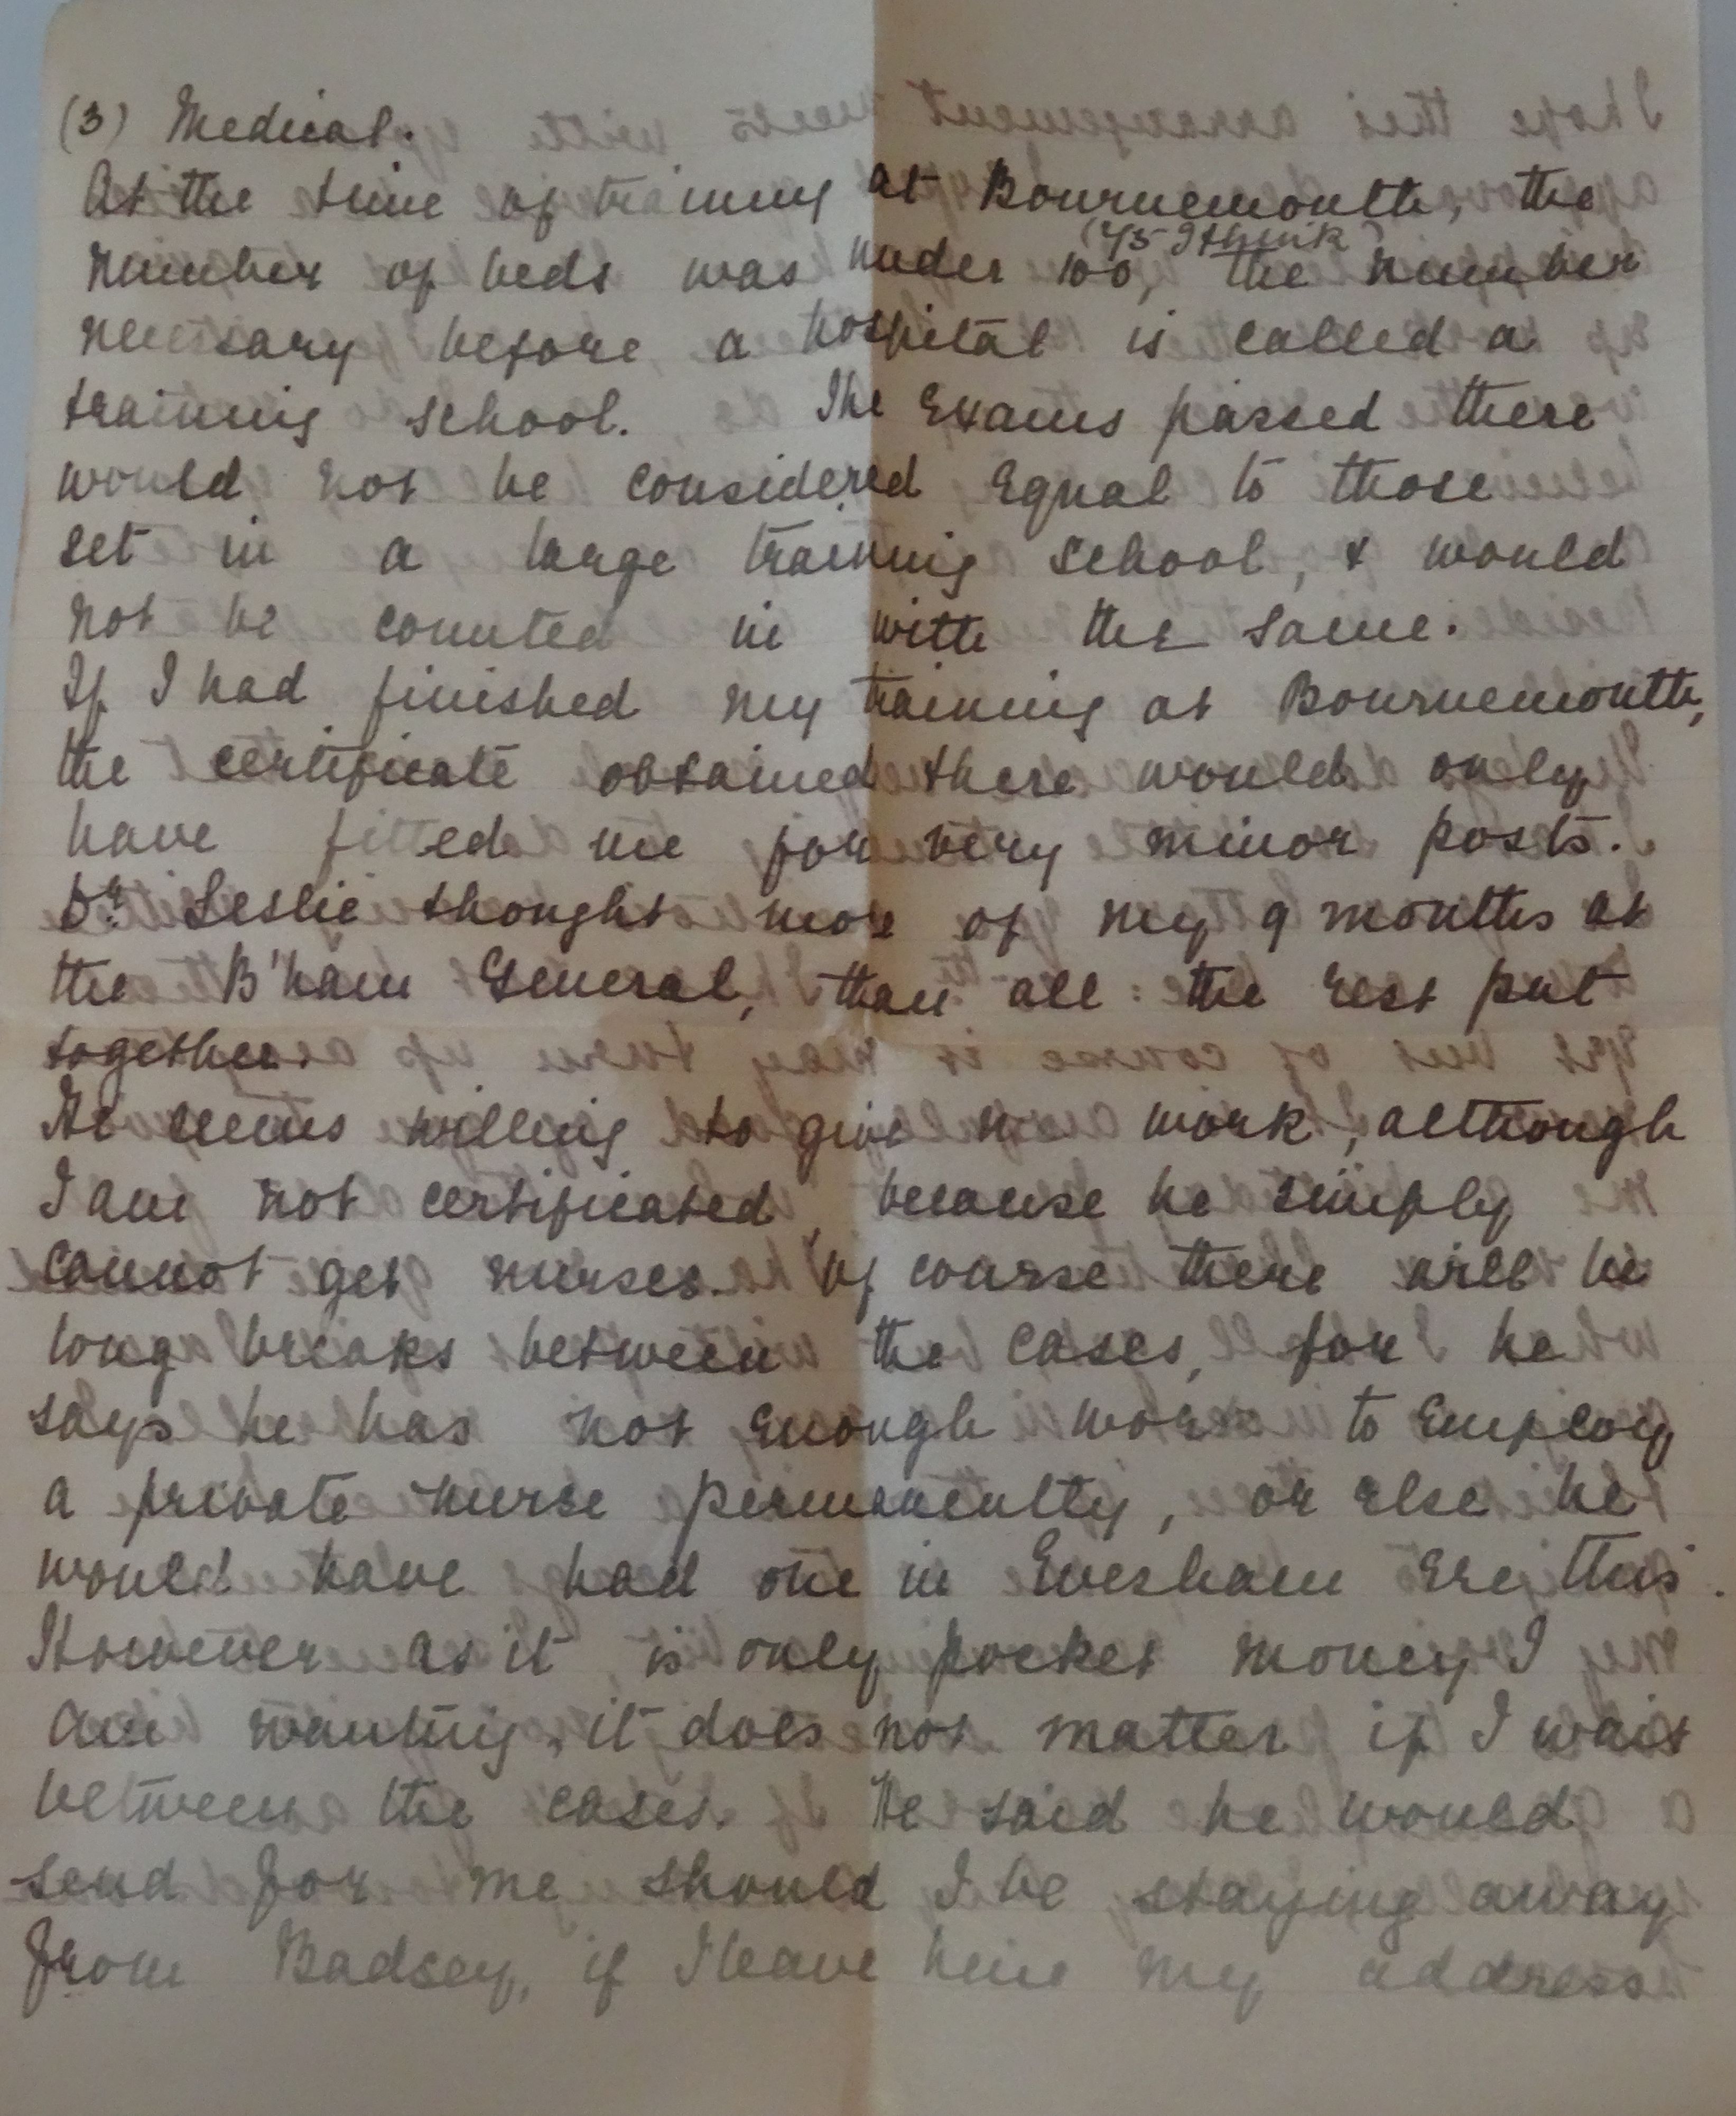 (3) Medical.
At the time of training at Bournemouth, the
(75 I think)
number of beds was under 100, the number
necessary before a hospital is called a
training school. The Exams passed there
would not be considered Equal to those
set in a large training school, & would
not be counted in with the same.
If I had finished my training at Bournemouth,
the certificate obtained there would only
have fitted me for very minor posts.
Dr. Leslie thought more of my 9 months at
the B'ham General, than all the rest put
together.
He seems willing to give me work, although
I am not certificated, because he simply
cannot get nurses. Of course there will be
long breaks between the cases, for he
says he has not Enough work to Employ
a private nurse permanently, or else he
would have had one in Evesham Ere this.
However as it is only pocket money I
am wanting, it does not matter if I wait
between the cases. He said he would
send for me should I be staying away
from Badsey, if I leave him my address